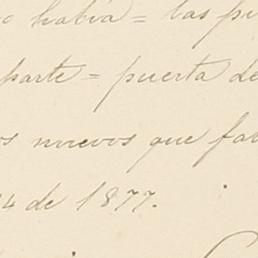 había = las pu
parte = puerta de
os nuevos que fa
24 de 1877.